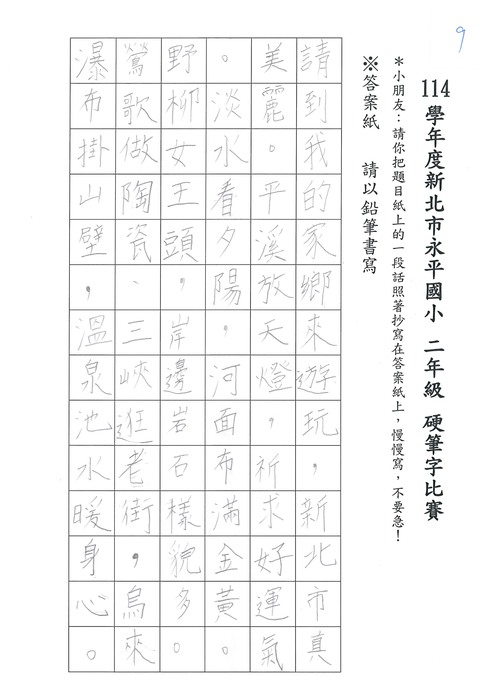 9
114學年度新北市永平國小 二年級 硬筆字比賽
＊小朋友：請你把題目紙上的一段話照著抄寫在答案紙上，慢慢寫，不要急！
※答案紙 請以鉛筆書寫
請到我的家鄉來遊玩，新北市真
美麗。平溪放天燈，祈求好運氣
。淡水看夕陽，河面布滿金黃。
野柳女王頭，岸邊岩石樣貌多。
鶯歌做陶瓷、三峽逛老街，烏來
瀑布掛山壁，溫泉池水暖身心。